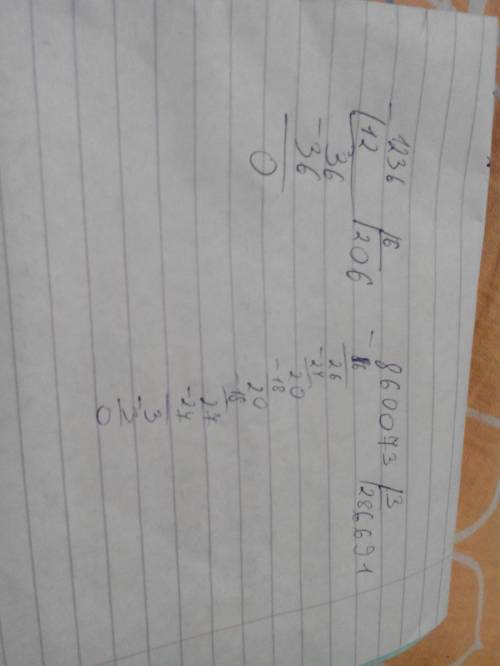 - 1236 | 6
12 | 206
36
- 36
0
- 860073 | 3
6 | 286691
26
- 24
20
- 18
20
- 18
27
- 27
3
- 3
0